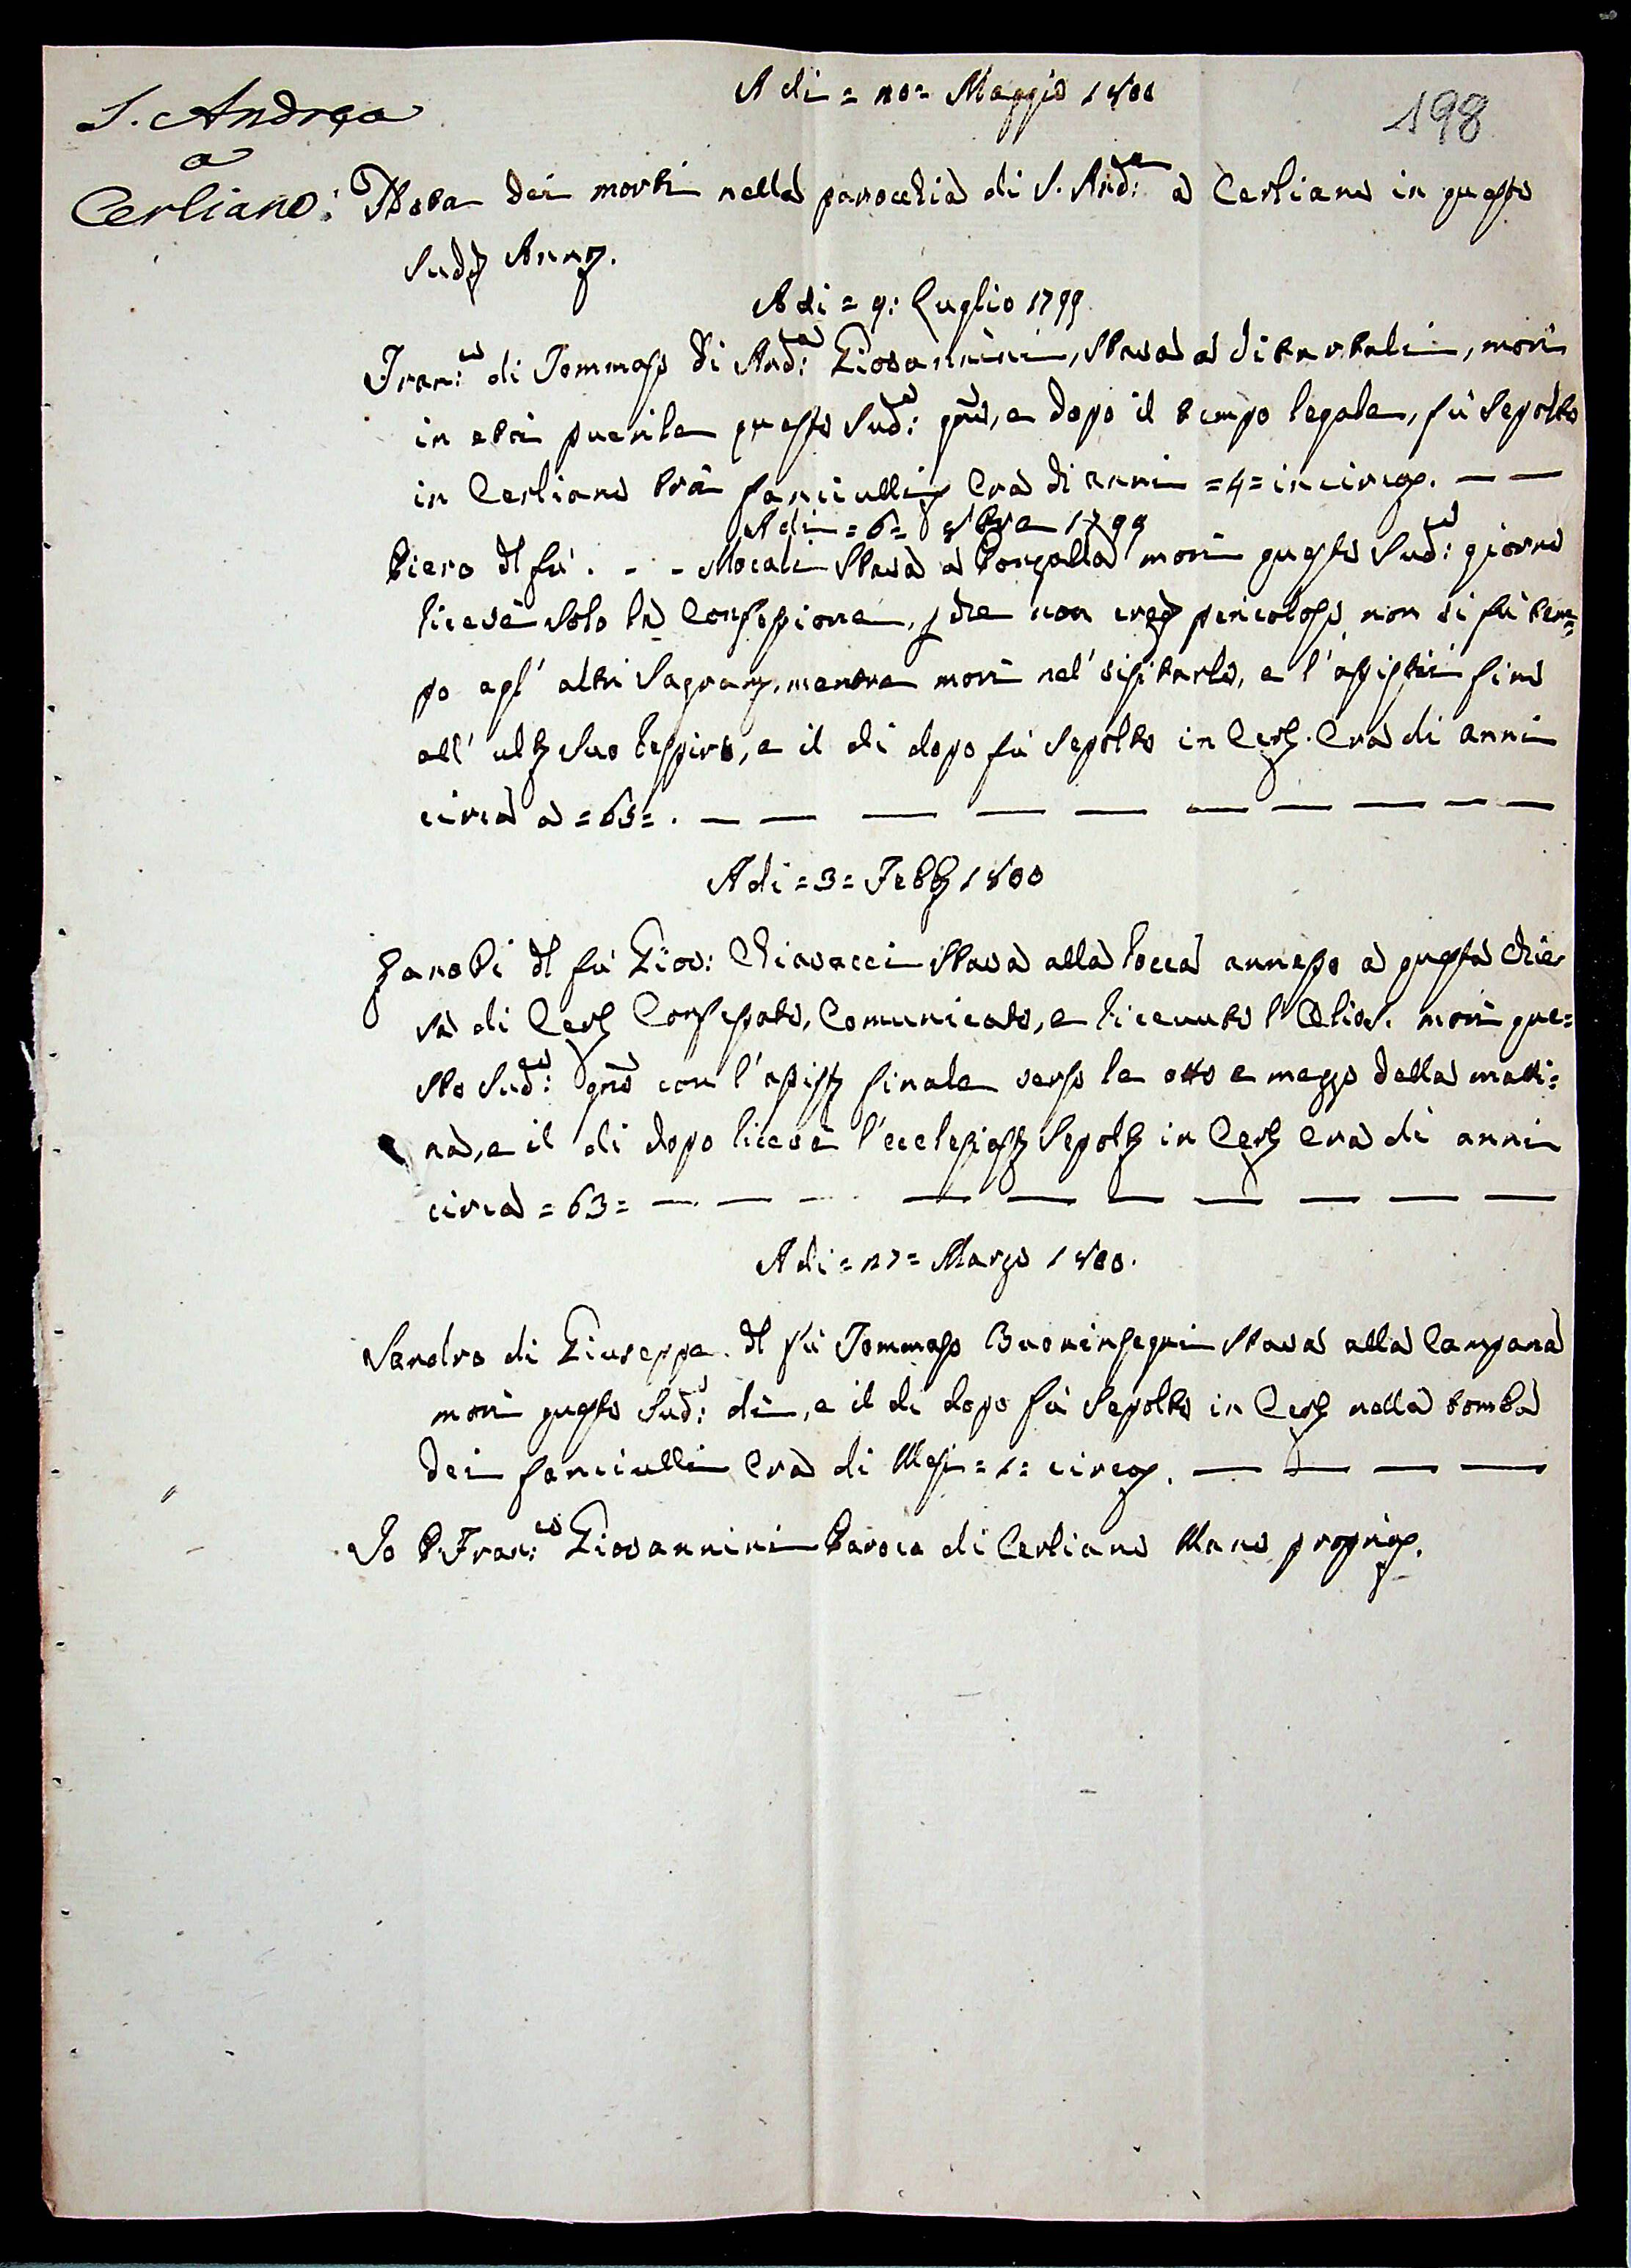 S. Andrea
a
Cerliano:
198
Adi = 20 = Maggio 1800
Nota dei morti nella parocchia di S. And:ea a Cerliano in questo
Sudo Anno.
Adi = 9: Luglio 1799
Fran:co di Tommaso di And:a Giovannini, stava a, morì
in età puerile questo Sud:o gno, e dopo il tempo legale, fù sepolto
in Cerliano trà fanciulli Era di anni = 4 = incirca.
Adi = 6 = 1799
Piero dl fù . - - Mocali Stava a morì questo Sud:o giorno
ricevè solo la Confessione, pche non credo pericoloso non si fù tem=
po agl' altri Sagram, mentre morì nel' visitarlo, e l'assistei fino
all' ulto suo respiro, e il di dopo fù Sepolto in Cerl. Era di anni
circa a = 65 = .
Adi = 3 = Febb 1800
Zanobi dl fù Giov: Chiavacci stava alla Rocca annesso a questa Chie-
sa di Cerl Confessato, Comunicato, e ricevuto l'Olios. morì que=
sto Sud:o gno con l'assist finale verso le otto e mezzo della matti=
na, e il di dopo ricevè l'ecclesiast Sepolt in Cerl era di anni
circa = 63 =
Adi = 27 = Marzo 1800.
Sandro di Giuseppe dl fù Tommaso Buoninsegni stava alla Campana
morì questo Sud:o dì, e il di dopo fù sepolto in Cerl nella tomba
dei fanciulli Era di Mesi = 1 = circa.
Io P. Fran:co Giovannini Paroco di Cerliano Mano propria.